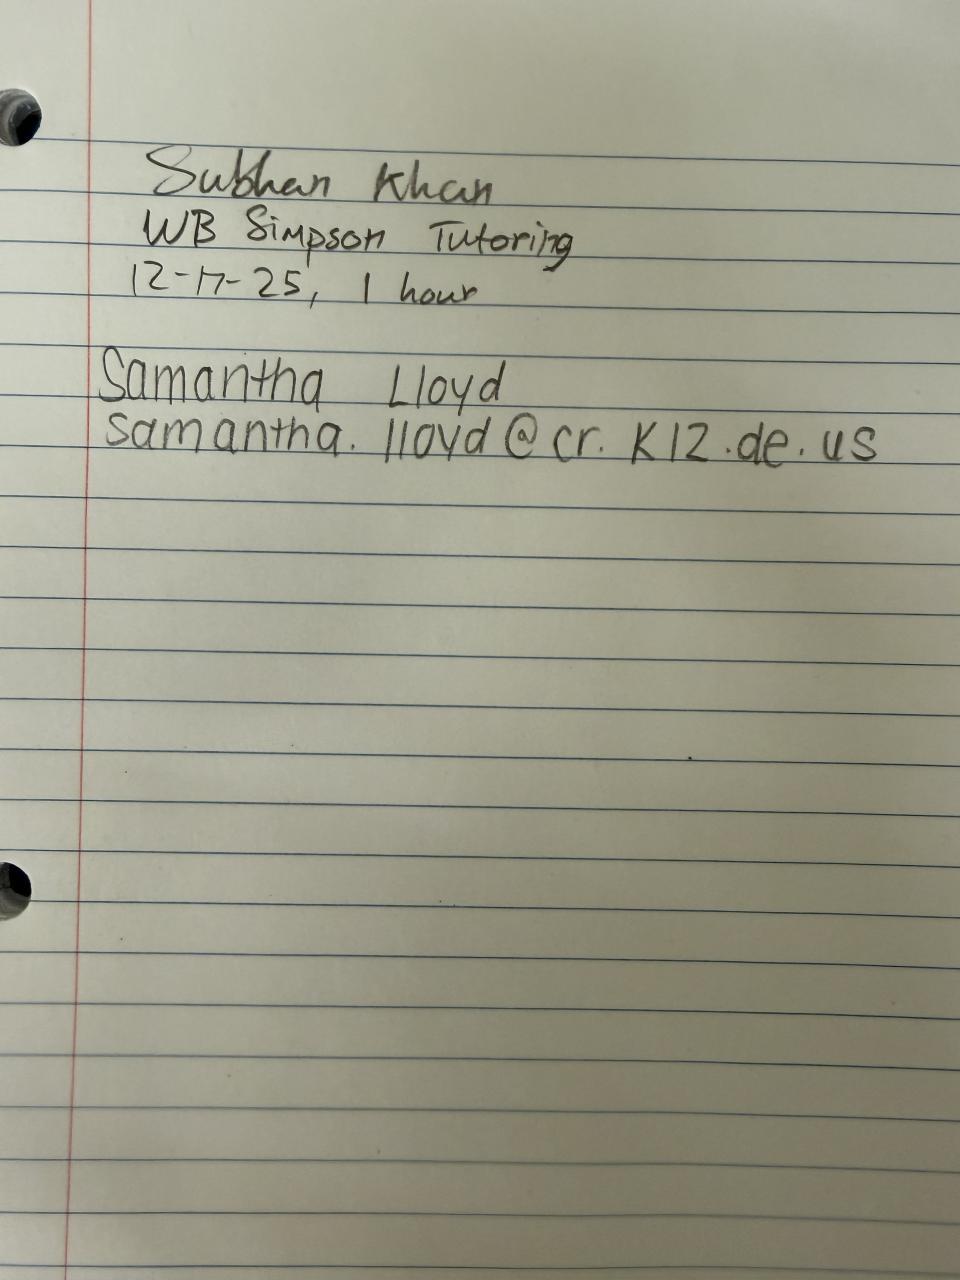 Subhan Khan
WB Simpson Tutoring
12-17-25, 1 hour
Samantha Lloyd
samantha.lloyd@cr.K12.de.us